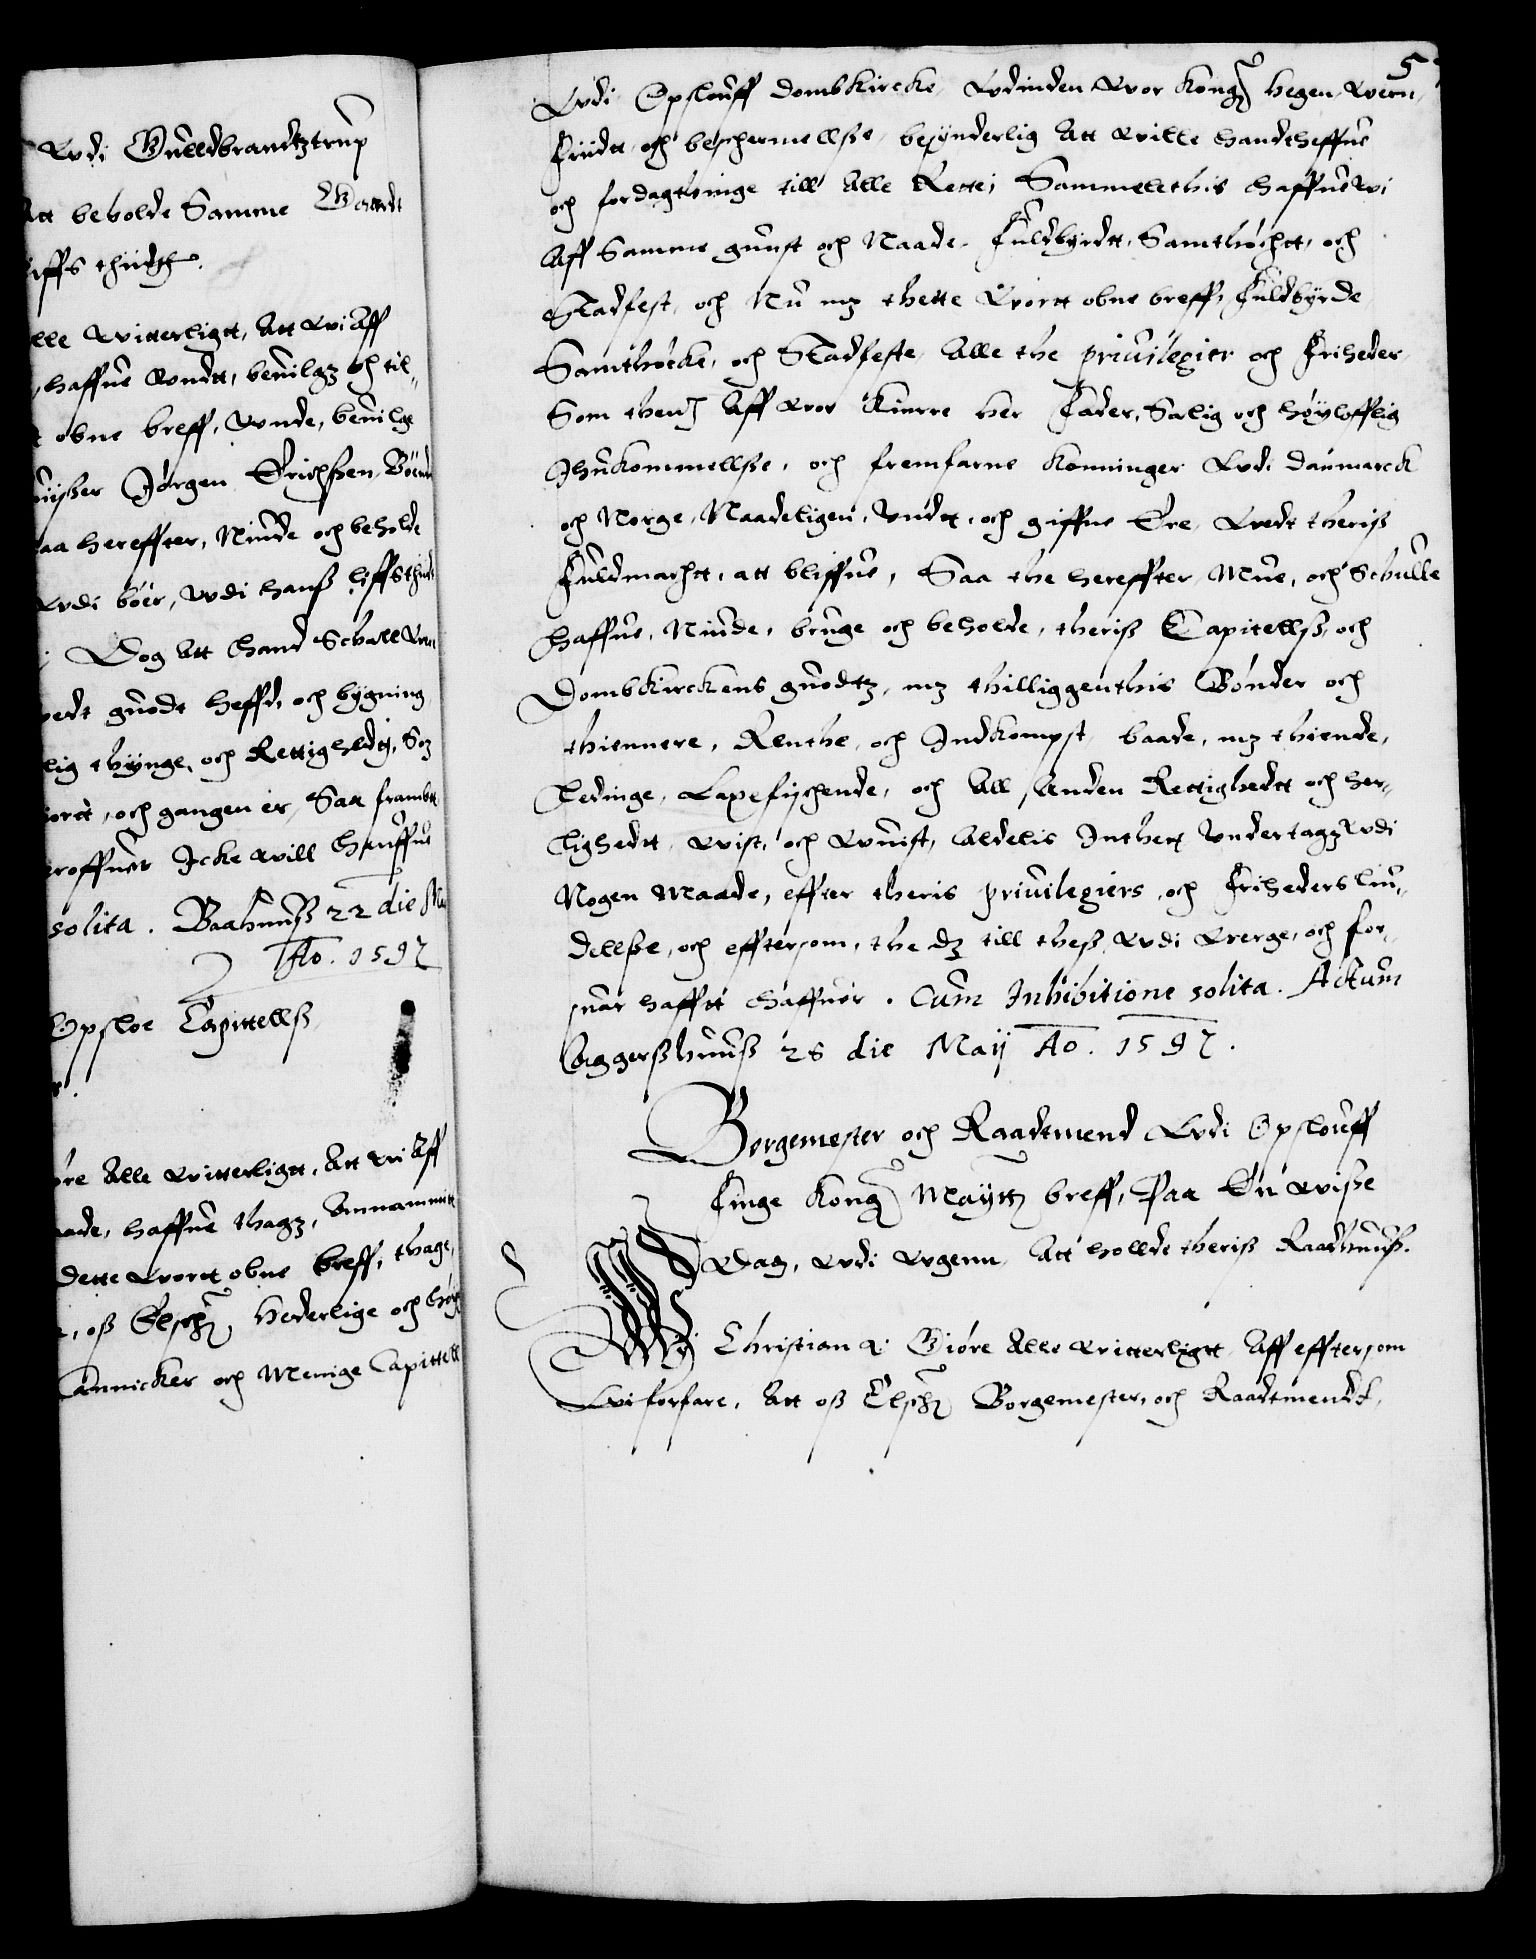 Vdi Gulldbrandtztrup
Att beholde Samme Gaardt
liffs thiidth.
alle Vitterligtt, Att Vi Aff
haffue Vondtt, beuilgz och til¬
obne breff, Vnde, beuilge
Jörgen Erichßen
saa hereffter, Niude och beholde
Vdi böer, Vdi hans liffsthiid
Dog Att hand Schall
vedt guodt heffd, och bÿgning
lig thÿnge, och Rettighedtz, Sz
giortt, och gangen er, Saa frambtt
Icke will haffue
solita. Baahuuß 22 die Maÿ
Ao. 1597
Opsloe Capittells
Giöre Alle Vitterligtt, Att Vi Aff
Naade, haffue thagz, Annammitt
Dette Vortt obne breff, thage,
oß Elsche, Hederlige och Höÿ
Cannicker och Menige Capittell
5
Vdi Opslouff Dombkircke Vdinden Vor Kong: hegen Vern,
friidt och beschermellße, besÿnderlig Att Ville handtheffue
och fordagthinge till Alle Rette, Sammelethis haffue Vi
Aff Samme gunst och Naade. Fuldbÿrdtt, Samthöchtt, och
Stadfest, och Nu mz thette Vortt obne breff, Fuldbÿrde
Samthöcke, och Stadfeste, Alle the priuilegier och Friheder,
Som thenz Aff Vor Kierre Her Fader, Salig och Höÿlofflig
Jhukommellße, och fremfarne Konninger Vdi Danmarck
och Norge, Naadeligen, Vndtt, och giffne Ere, Vedt theriß
Fuldmachtt, att bliffue, Saa the hereffter Mue, och Schulle
haffue, Niude, bruge och beholde, theris Capitells och
Dombkirckens guodtz, mz thilliggenthis Bönder och
thiennere, Renthe, och Indkompst, baade, mz thiende,
Ledinge, Laxefischende, och All, Anden Rettighedtt och Her¬
lighedtt, Vist, och Vuist, Aldelis Inthet Vndertagz Vdi
Nogen Maade, effter theris priuilegiers, och Friheders liu¬
dellße, och efftersom, the dz till theß, Vdi Verge, och for¬
suar hafftt haffuer. Cum Inhibitione solita. Actum
Aggerßhuuß 28 die Maÿ Ao. 1597.
Borgemester och Raadtmend Vdi Opslouff
Finge Kong: Maÿttz breff, Paa En Viße
Dag, Vdi Vgenn, Att hollde theriß Raadhuuß.
Wÿ Christian 4. Giöre Alle Vitterligtt, Aff efftersom
Vi forfare, Att oß Elsche Borgemester, och Raadtmendt,